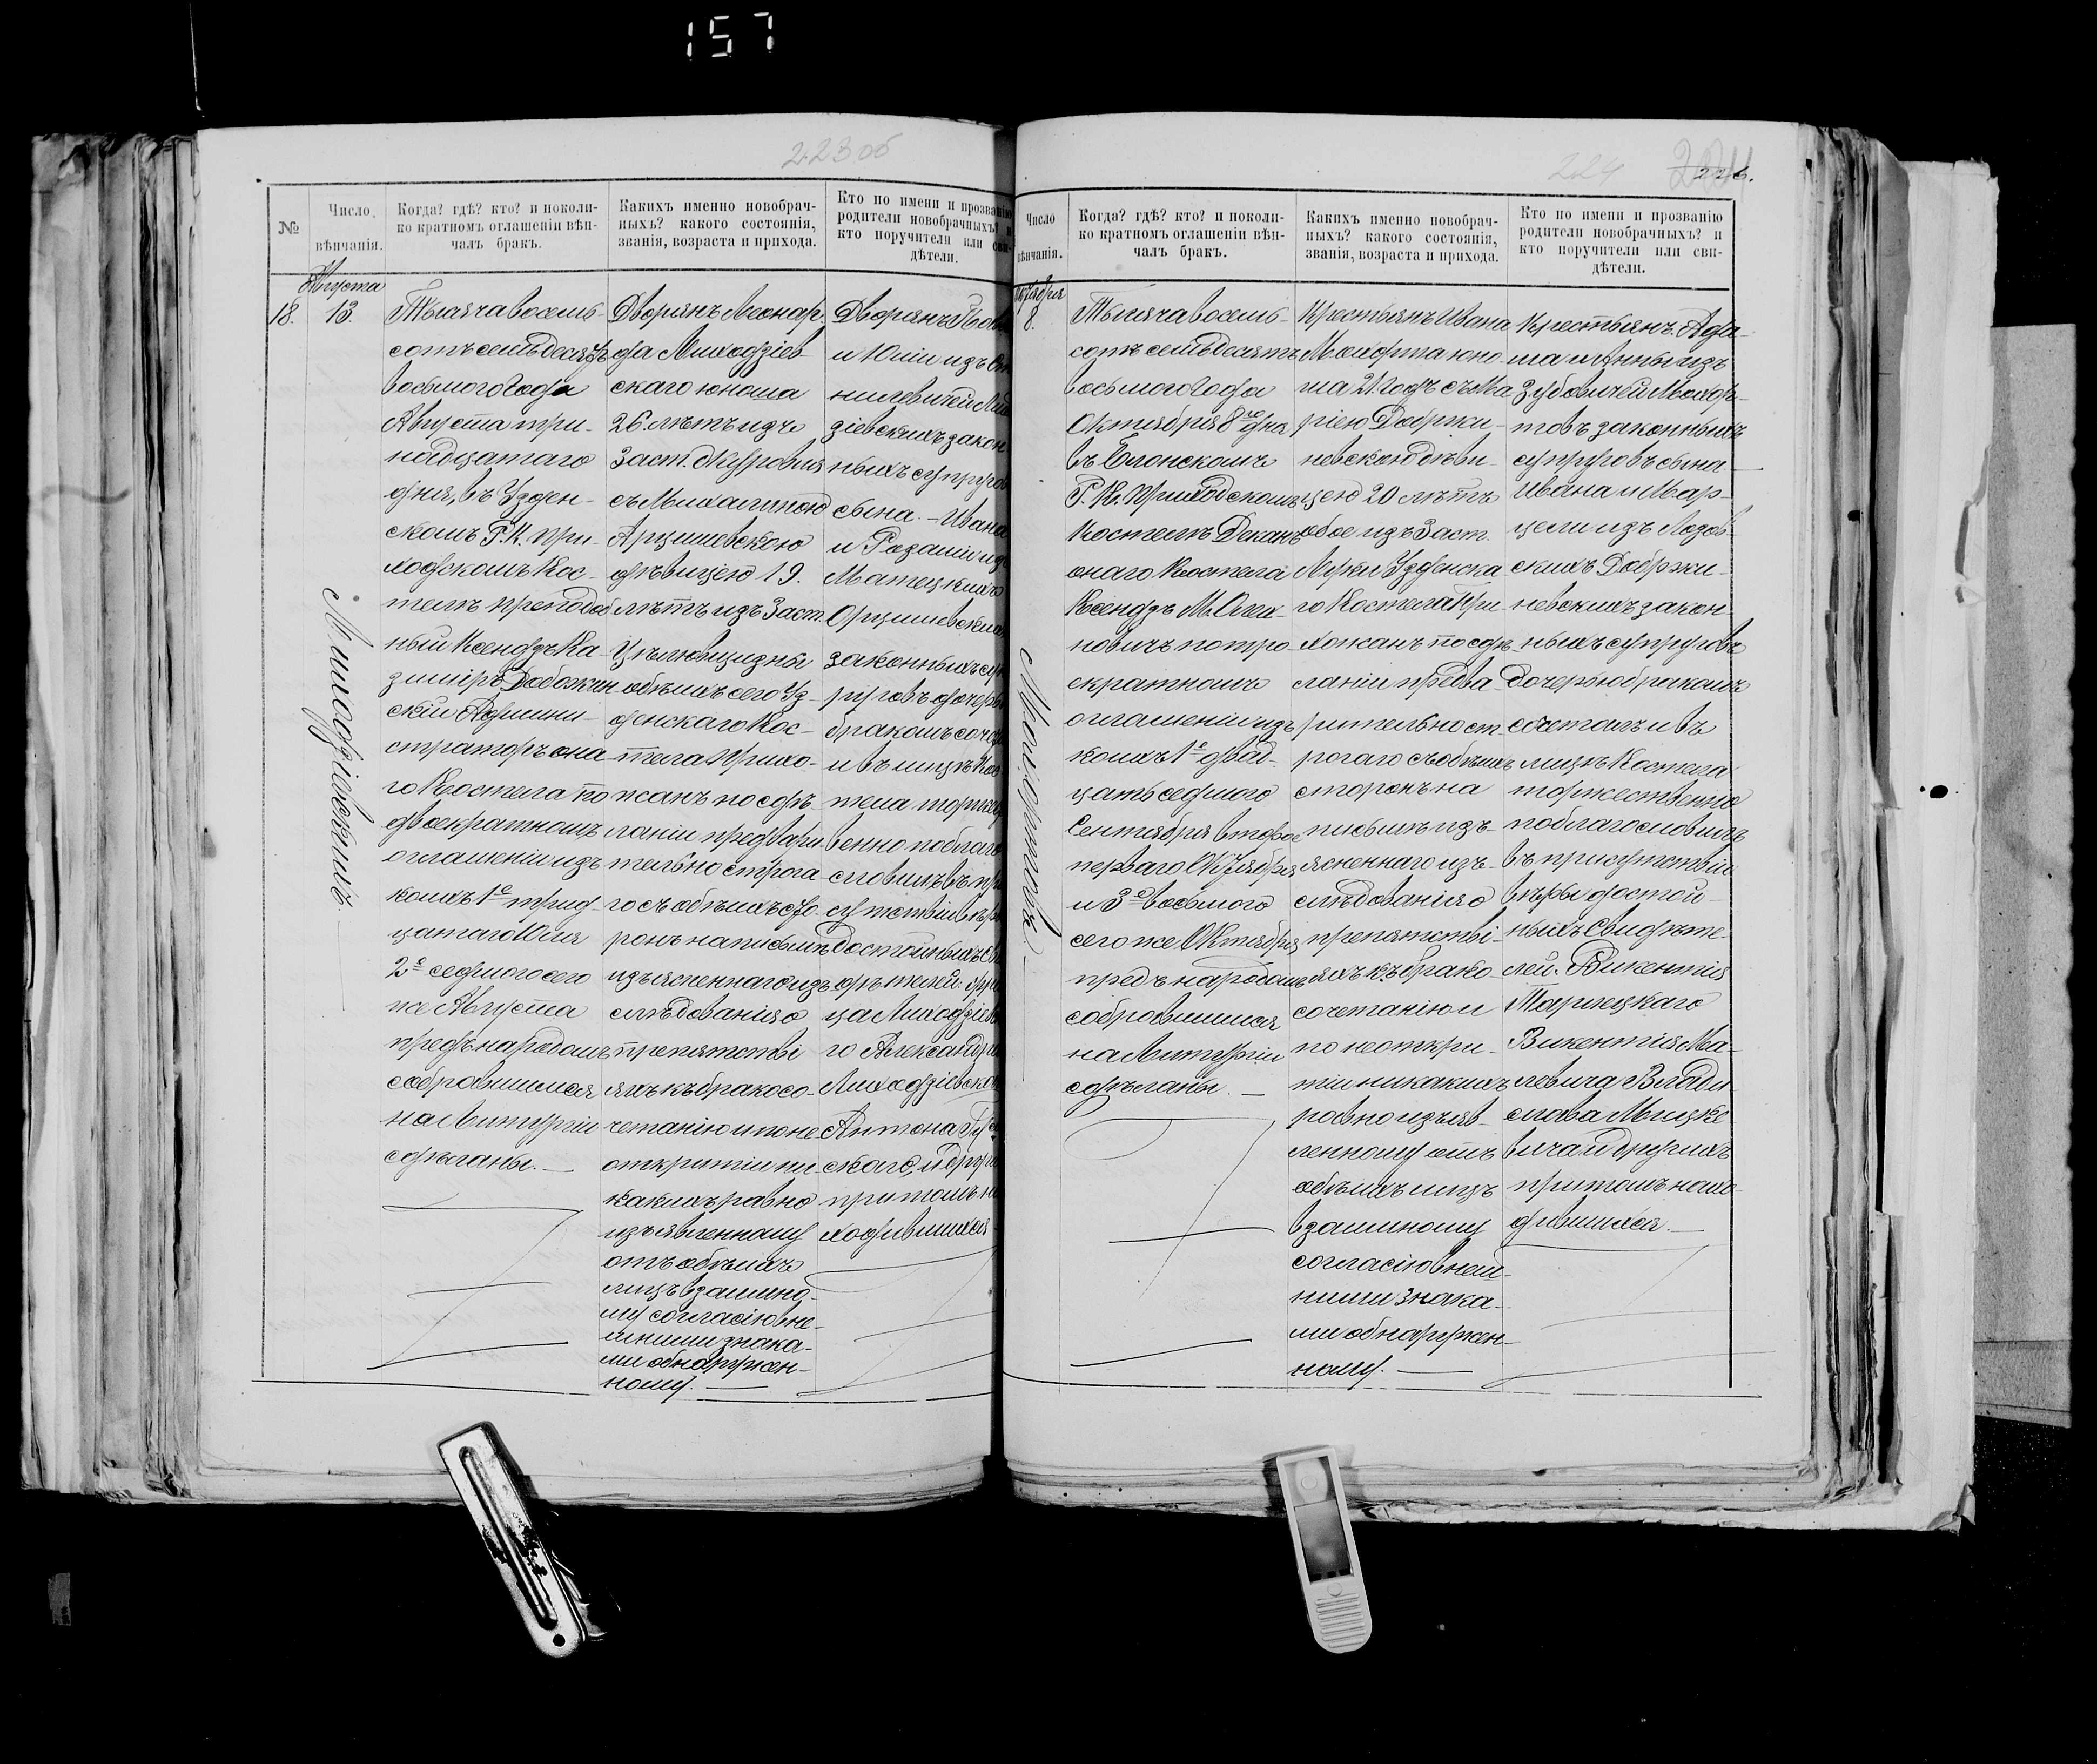 157
223 об
№
Число
вѣнчанія.
Когда? гдѣ? кто? и поколи-
ко кратномъ оглашеніи вѣн-
чалъ бракъ.
Какихъ именно новобрач-
ныхъ? какого состоянія,
званія, возраста и прихода.
Кто по имени и прозванію
родители новобрачныхъ? и
кто поручители или сви-
дѣтели.
Августа
18.
13.
Тысяча восемь-
сотъ семьдесятъ
восьмого года
Августа три-
надцатаго
дня, въ Узден-
скомъ Р. К. При-
ходскомъ Кос-
телѣ преподоб
ный Ксендзъ Ка-
зиміръ
скій Админи-
страторъ она-
го Костела по
двоекратномъ
оглашеніи изъ
коихъ 1е трид-
цатаго Юля
2е седмого сего
же Августа
предъ народомъ
собравшимся
на Литургіи
сдѣланы. —
Дворянъ Леонар-
да Лиходзіев-
скаго юноша
26. лѣтъ изъ
Заст.
съ Михалиною
Арцишевскою
дѣвицею 19.
лѣтъ изъ Заст.
обѣихъ сего Уз-
денскаго Кос-
тела Прихо-
жанъ по сдѣ-
ланіи предвари
тельно строга-
го съ обѣихъ сто-
ронъ на письмѣ
изъясненнаго изъ-
слѣдованія о
препятстві
яхъ къ бракосо-
четанію и по не
открытіи ни-
какихъ равно
изъявленному
отъ обѣихъ
лицъ взаимно-
му согласію вне-
шними знака-
ми обнаружен-
ному. —
Дворянъ
и Юліи изъ
зіевскихъ закон
ныхъ супругов
сына. — Ивана
и Розаліи из
Матецкихъ
Орцишевских
законныхъ суп
руговъ дочерью
бракомъ соче
и въ лицѣ Кос
тела торжест
венно поблаго
словилъ въ при
сутствіи вѣры
достойныхъ Сви
дѣтелей:
ца Лиходзіевс
го Александра
Лиходзіевска
Антона
скаго, и други
притомъ на
ходившихся —
Лиходзіевскимъ.
224
226.
Число
вѣнчанія.
Когда? гдѣ? кто? и поколи-
ко кратномъ оглашеніи вѣн-
чалъ бракъ.
Какихъ именно новобрач-
ныхъ? какого состоянія,
званія, возраста и прихода.
Кто по имени и прозванію
родители новобрачныхъ? и
кто поручители или сви-
дѣтели.
Октября
8.
Тысяча восемь-
сотъ семьдесятъ
восьмого года
Октября 8го дня
въ
Р. К. Приходскомъ
Костелѣ Декан
онаго Костела
Ксендзъ М.
новичъ по тро-
екратномъ
оглашеніи изъ
коихъ 1е двад-
цать седмого
Сентября второе
перваго Октября
и 3е восьмого
сего же Октября
предъ народомъ
собравшимся
на Литургіи
сдѣланы. —
Крестьянъ Ивана
Махорта юно-
ша 21. годъ съ Ма
ріею Добржи-
невскою дѣви-
цею 20 лѣтъ
обое изъ Заст.
Луки Узденска-
го Костела При-
хожанъ по сдѣ-
ланіи предва-
рительно ст-
рогаго съ обѣихъ
сторонъ на
письмѣ изъ-
ясненнаго изъ-
слѣдованія о
препятстві-
яхъ къ брако-
сочетанію и
по неоткры-
тіи никакихъ
равно изъяв-
ленному отъ
обѣихъ лицъ
взаимному
согласію внеш-
ними знака-
ми обнаружен-
ному. —
Крестьянъ Ада-
ма и Анны изъ
Зубовичей Махор-
товъ законныхъ
супруговъ сына —
Ивана и Мар-
цели изъ Лозов-
скихъ Добржи-
невскихъ закон-
ныхъ супруговъ
дочерью бракомъ
сочеталъ и въ
лицѣ Костела
торжественно
поблагословилъ
въ присутствіи
вѣры достой-
ныхъ Свидѣте-
лей. Викентія
Викентія Ма-
левича Влади-
слава Мицке-
вича и другихъ
притомъ нахо-
дившихся. —
Махортовъ.